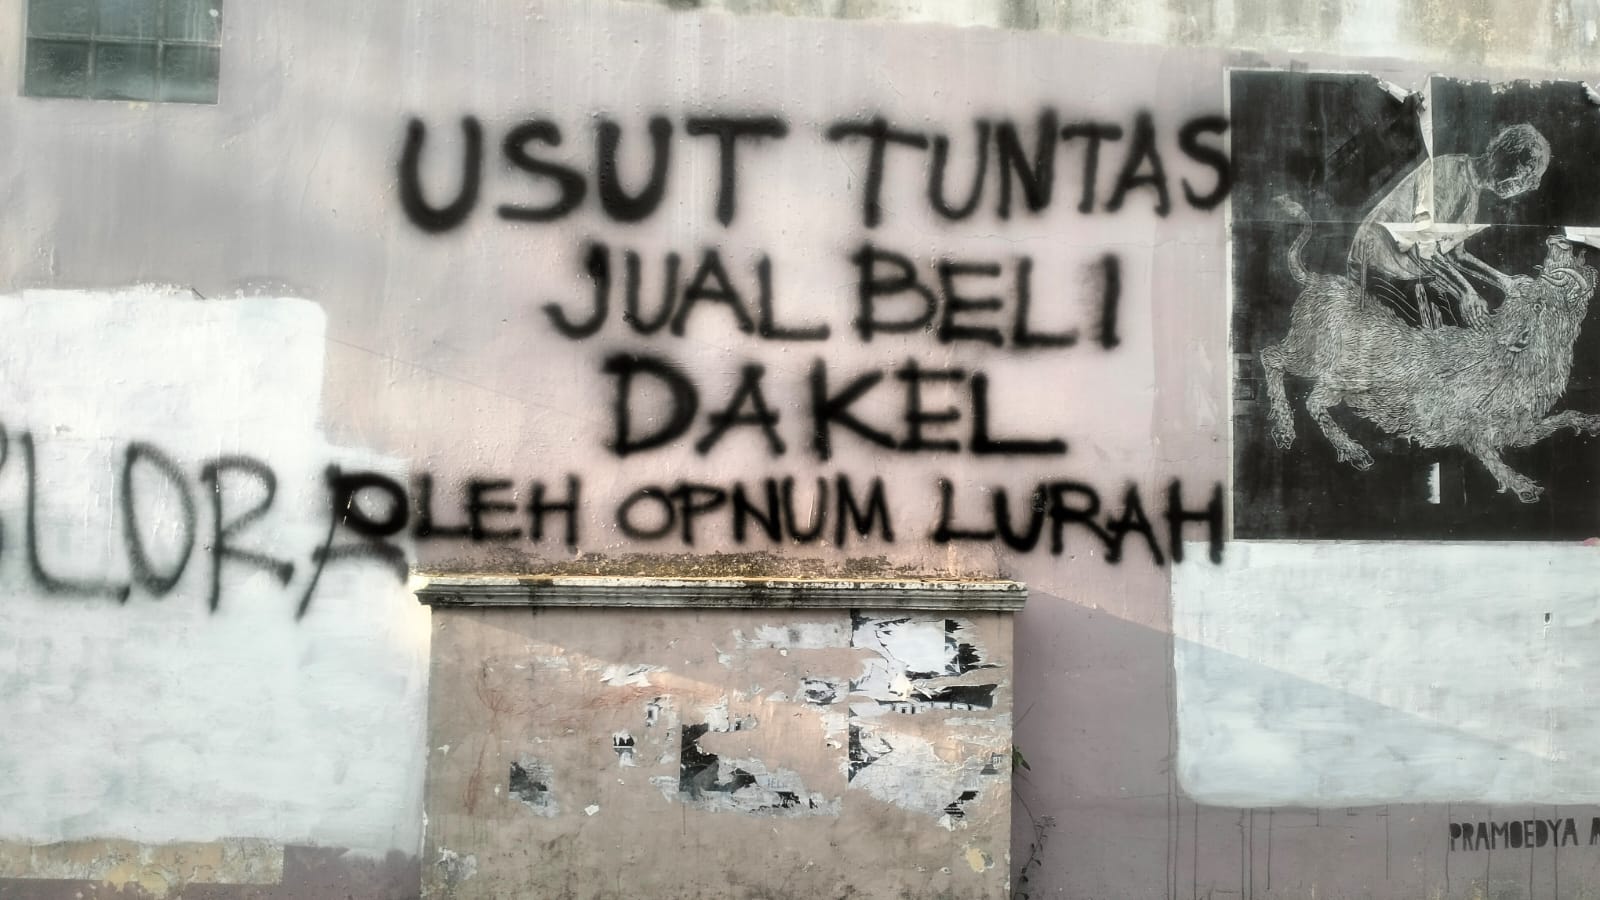 USUT TUNTAS
JUAL BELI
DAKEL
OLEH OPNUM LURAH
PRAMOEDYA